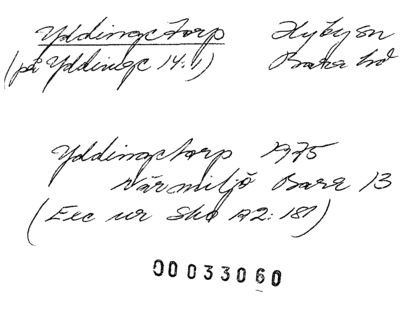 Yddingetorp Hyby sn
(på Yddinge 14:1) Bara hd
Yddingetorp 1975
närmiljö Bara 13
(Exc ur Sko A2: 181)
00033060